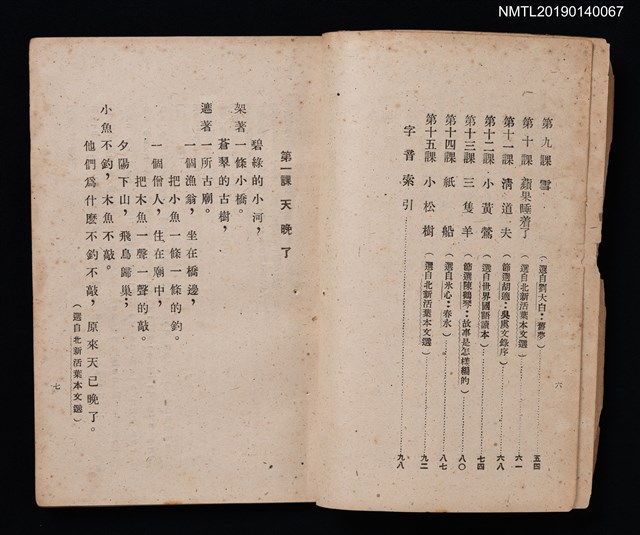 NMTL20190140067
第九課 雪（選自劉大白：舊夢）五四
第十課 蘋果睡着了（選自北新活葉本文選）六一
第十一課 清道夫（節選胡適：吳虞文錄序）六八
第十二課 小黃鶯（選自世界國語讀本）七四
第十三課 三隻羊（節選陳鶴琴：故事是怎樣編的）八〇
第十四課 紙船（選自冰心：春水）八七
第十五課 小松樹（選自北新活葉本文選）九二
字音索引 九八
六
第一課 天晚了
碧綠的小河，
架著一條小橋。
蒼翠的古樹，
遮著一所古廟。
一個漁翁，坐在橋邊，
把小魚一條一條的釣。
一個僧人，住在廟中，
把木魚一聲一聲的敲。
夕陽下山，飛鳥歸巢；
小魚不釣，木魚不敲。
他們爲什麽不釣不敲，原來天已晚了。
（選自北新活葉本文選）
七